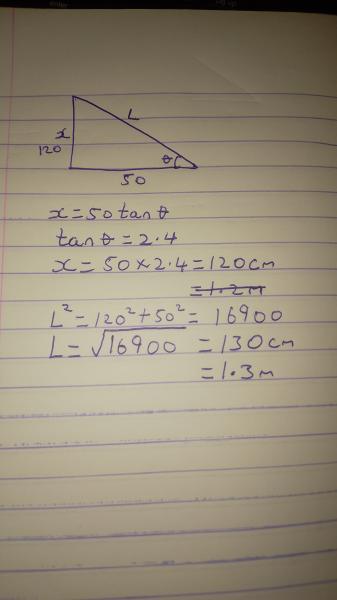 L
x
120
θ
50
x = 50 tan θ
tan θ = 2.4
x = 50 × 2.4 = 120cm
= 1.2m
L² = 120² + 50² = 16900
L = √16900 = 130cm
= 1.3m